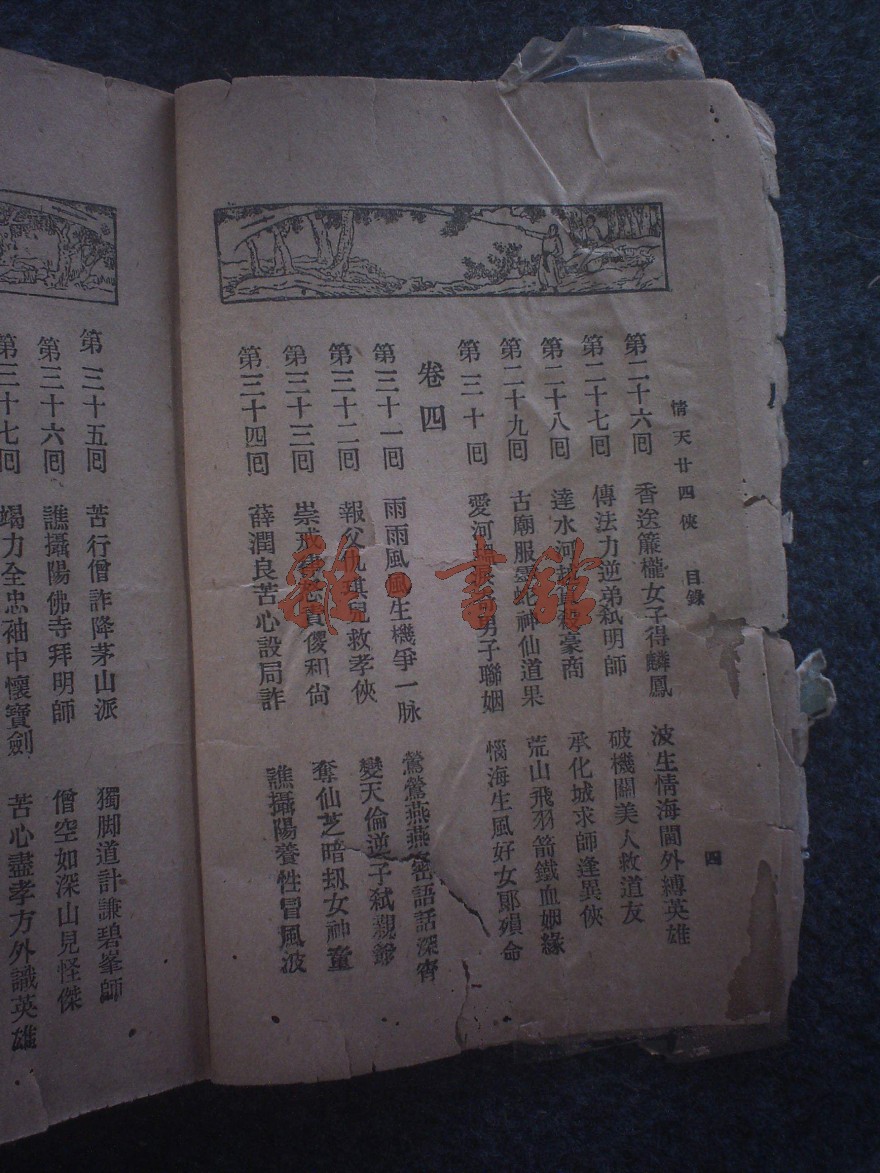 情天廿四俠　目錄　四
第二十六囘　香送簾櫳女子得麟鳳　波生情海閫外縛英雄
第二十七囘　傳法力逆弟弒明師　破機關美人救道友
第二十八囘　達水河　豪商　承化城求師逢異俠
第二十九囘　古廟服靈蛇神仙道果　荒山飛羽箭鐵血姻緣
第三十囘　愛河　男子聯姻　惱海生風好女郞殞命
卷四
第三十一囘　雨雨風風生機爭一脉　鶯鶯燕燕密語話深宵
第三十二囘　報父仇琪兒救孝俠　變天倫逆子弒親爺
第三十三囘　崇戒律　責儍和尙　奪仙芝暗刼女神童
第三十四囘　薛潤良苦心設局詐　譙攝陽養性冒風波
第三十五囘　苦行僧詐降茅山派　獨脚道計謙碧峯師
第三十六囘　譙攝陽佛寺拜明師　僧空如深山見怪傑
第三十七囘　竭力全忠袖中懷寶劍　苦心盡孝方外識英雄
雜·書館